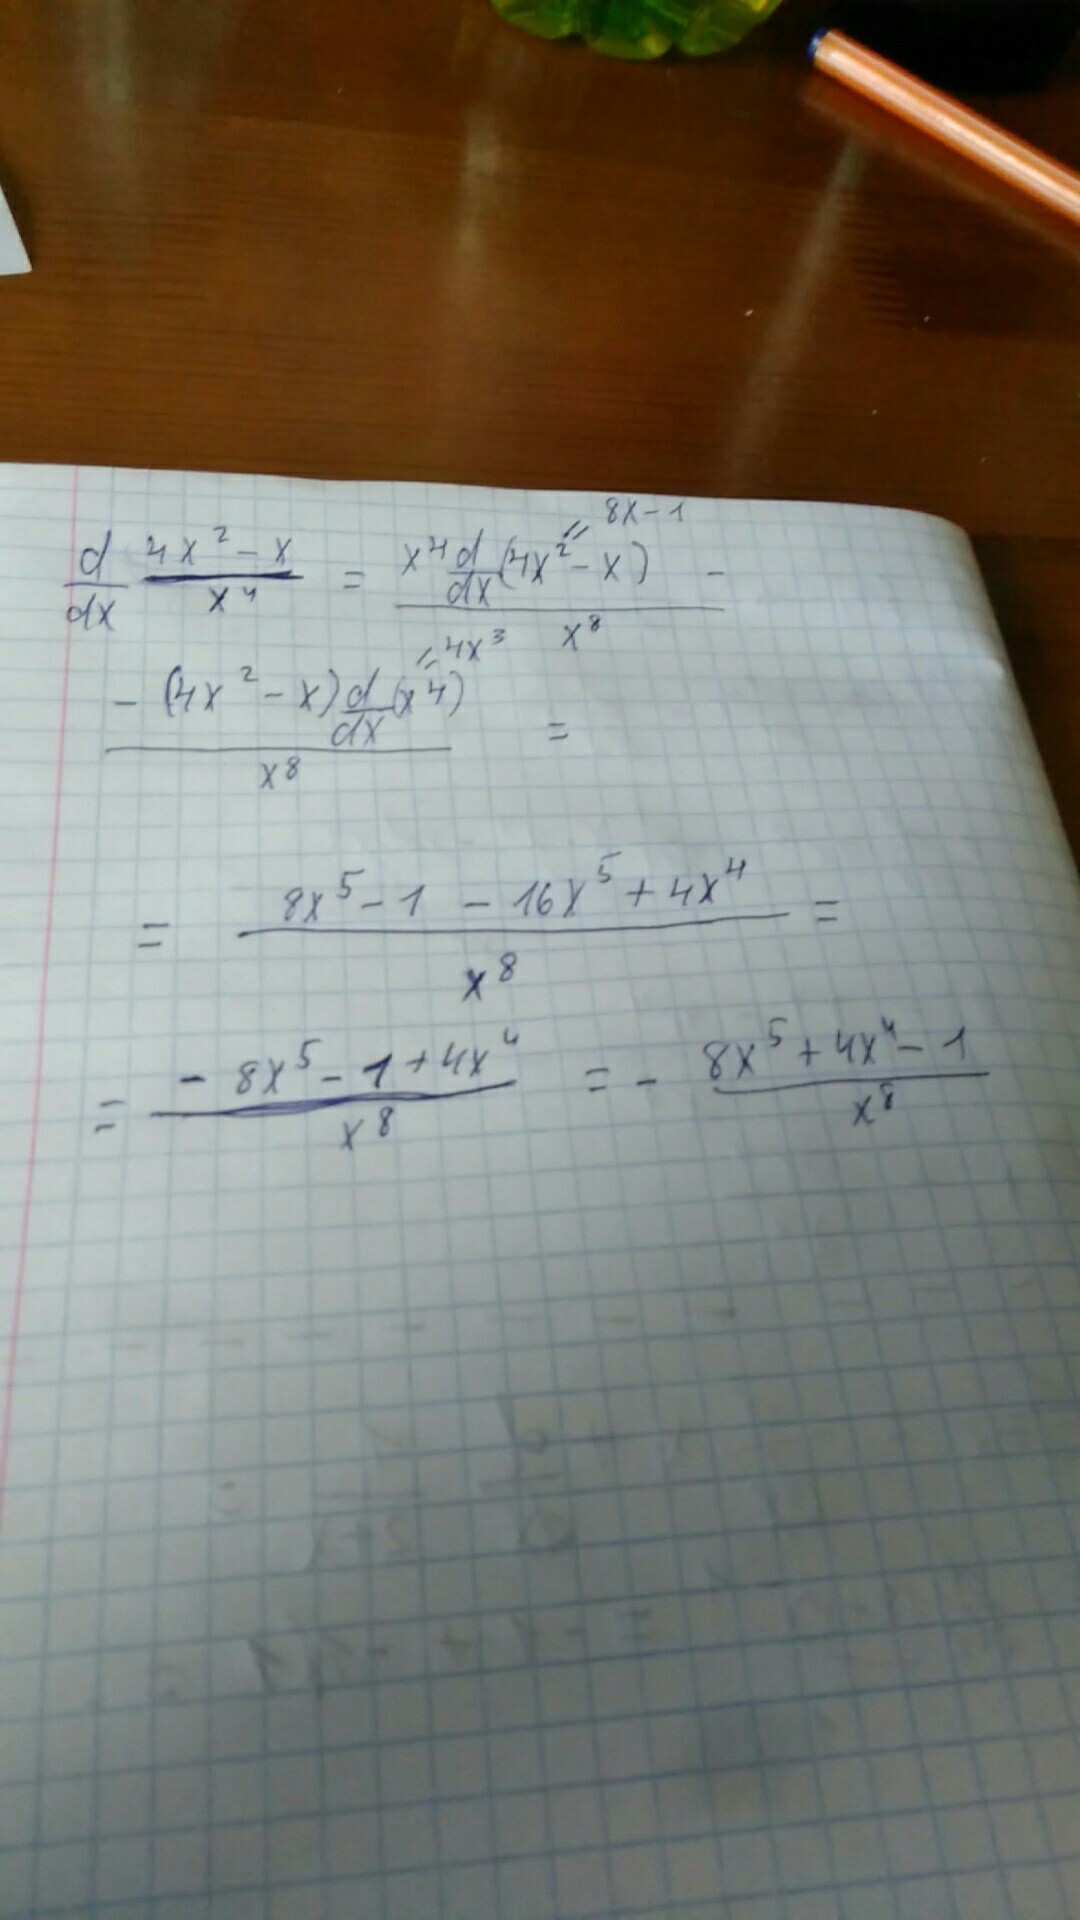 8x-1
d/dx (4x²-x)/x⁴ = x⁴ d/dx (4x²-x) / x⁸ -
=4x³
- (4x²-x) d/dx (x⁴) / x⁸ =
= (8x⁵-1 - 16x⁵+4x⁴) / x⁸ =
= (- 8x⁵-1+4x⁴) / x⁸ = - (8x⁵+4x⁴-1) / x⁸